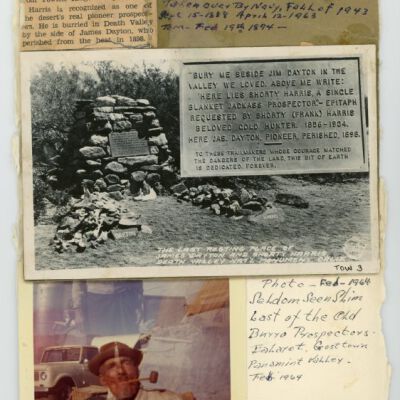 Harris is recognized as one of
the desert's real pioneer prospec-
ors. He is buried in Death Valley
by the side of James Dayton, who
perished from the heat in 1898.
Taken over By Navy, Fall of 1943
15-1888 April 12-1963
Tom - Feb 19th 1894 -
"BURY ME BESIDE JIM DAYTON IN THE
VALLEY WE LOVED. ABOVE ME WRITE:
'HERE LIES SHORTY HARRIS, A SINGLE
BLANKET JACKASS PROSPECTOR.'" - EPITAPH
REQUESTED BY SHORTY (FRANK) HARRIS
BELOVED GOLD HUNTER. 1856-1934.
HERE JAS. DAYTON, PIONEER, PERISHED, 1898.
TO THESE TRAILMAKERS WHOSE COURAGE MATCHED
THE DANGERS OF THE LAND, THIS BIT OF EARTH
IS DEDICATED, FOREVER.
THE LAST RESTING PLACE OF
JAMES DAYTON AND SHORTY HARRIS
DEATH VALLEY NAT'L MONUMENT
TOW 3
Photo - Feb - 1964
Seldom Seen Slim
Last of the Old
Burro Prospectors -
Ballarat, Ghosttown
Panamint Valley -
Feb 1964